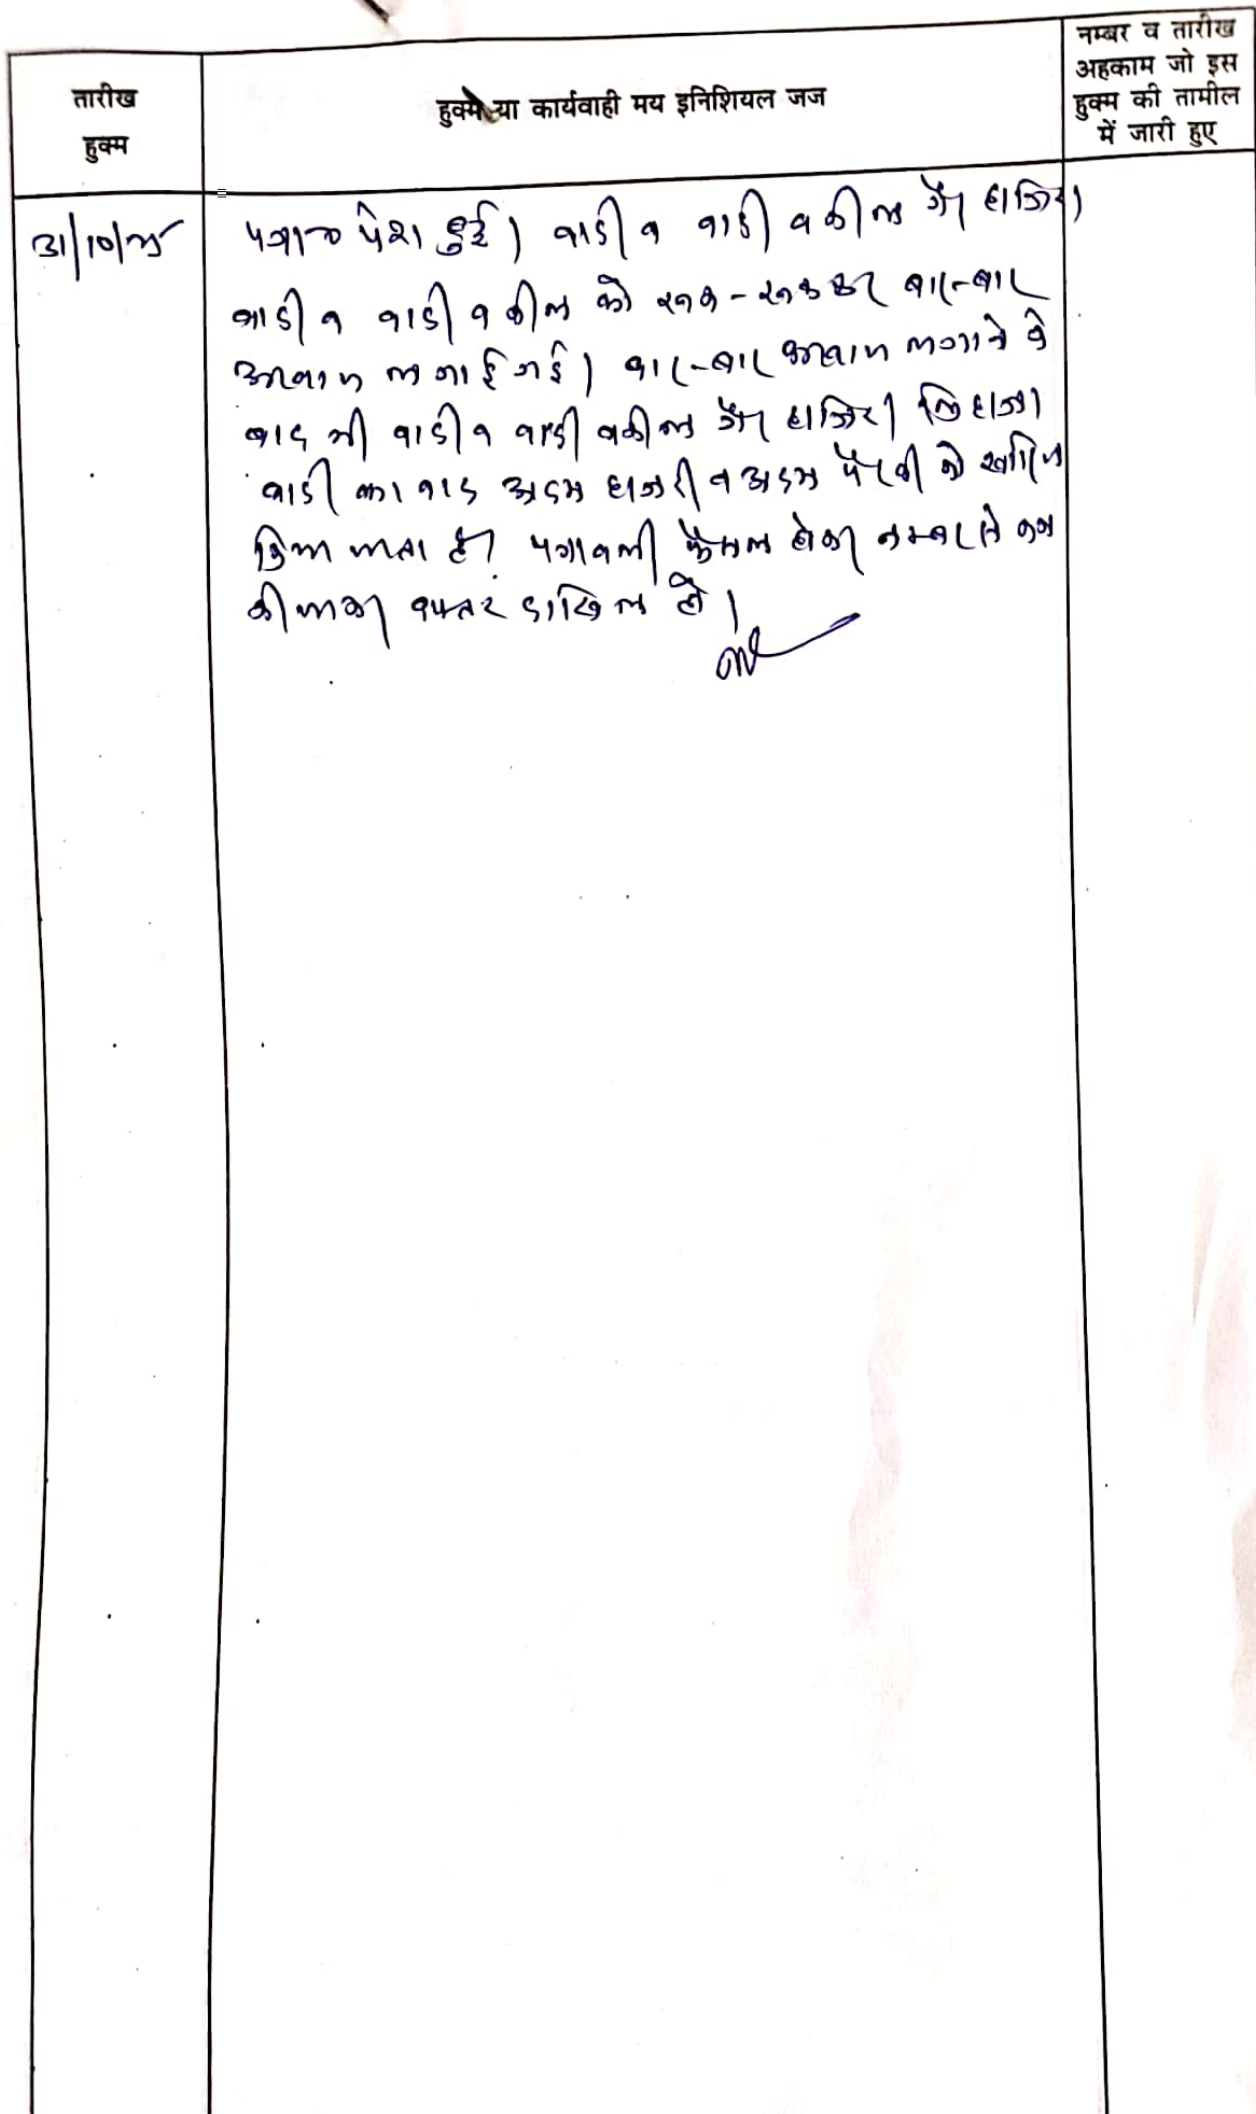 तारीख
हुक्म
हुक्म या कार्यवाही मय इनिशियल जज
नम्बर व तारीख
अहकाम जो इस
हुक्म की तामील
में जारी हुए
31/10/25
पत्रा० पेश हुई। वादी व वादी वकील गैर हाजिर।
वादी व वादी वकील को रुक-रुक कर बार-बार
आवाज लगाई गई। बार-बार आवाज लगाने के
बाद भी वादी व वादी वकील गैर हाजिर। लिहाजा
वादी का वाद अदम हाजरी व अदम पैरवी में खारिज
किया जाता है। पत्रावली फैसल होकर नम्बर से कम
की जाकर दफ्तर दाखिल हो।